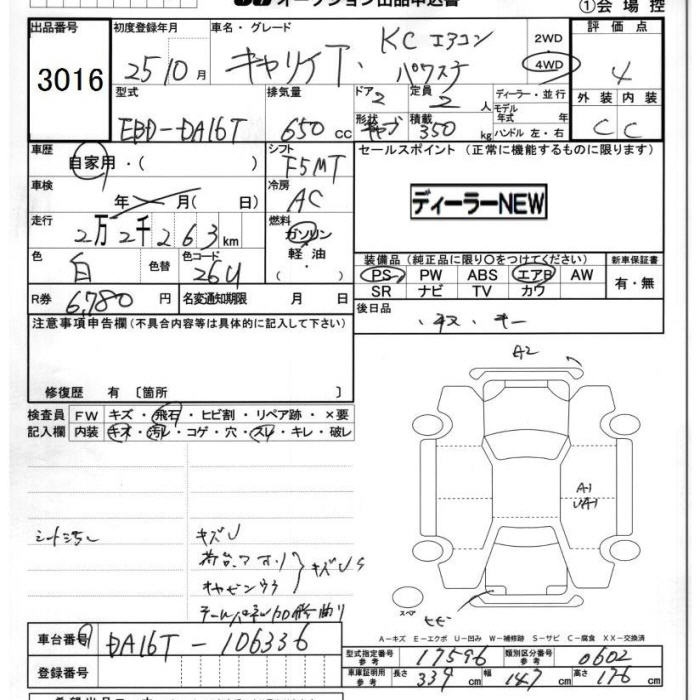 オークション出品申込書
①会場控
出品番号
3016
初度登録年月
25 10月
車名・グレード
キャリイ
KC エアコン
パワステ
2WD
4WD
評価点
4
型式
EBD-DA16T
排気量
650cc
ドア
2
定員
2人
形状
積載
350kg
ディーラー・並行
モデル年式 年
ハンドル 左・右
外装
内装
C
C
車歴
自家用・( )
シフト
F5MT
セールスポイント (正常に機能するものに限ります)
ディーラーNEW
車検
年 月( 日)
冷房
AC
走行
2万2千263km
燃料
ガソリン
軽油
・( )
色
白
色替
色コード
26U
装備品 (純正品に限り○をつけてください)
新車保証書
PS PW ABS エアB AW
SR ナビ TV カワ
有・無
R券
6,780円
名変通知期限 月 日
後日品
・キー
注意事項申告欄(不具合内容等は具体的に記入して下さい)
修復歴 有 〔箇所 〕
検査員
記入欄
FW キズ・飛石・ヒビ割・リペア跡・×要
内装 キズ・汚れ・コゲ・穴・スレ・キレ・破レ
A2
A1
UA1
シート汚れ
キズU
荷台、アオリ
キャビンウラ
キズUS
スペア
A-キズ E-エクボ U-凹み W-補修跡 S-サビ C-腐食 XX-交換済
車台番号
DA16T-106336
登録番号
型式指定番号
参考
17596
類別区分番号
参考
0602
車庫証明用
参考
長さ
339cm
幅
147cm
高さ
176cm